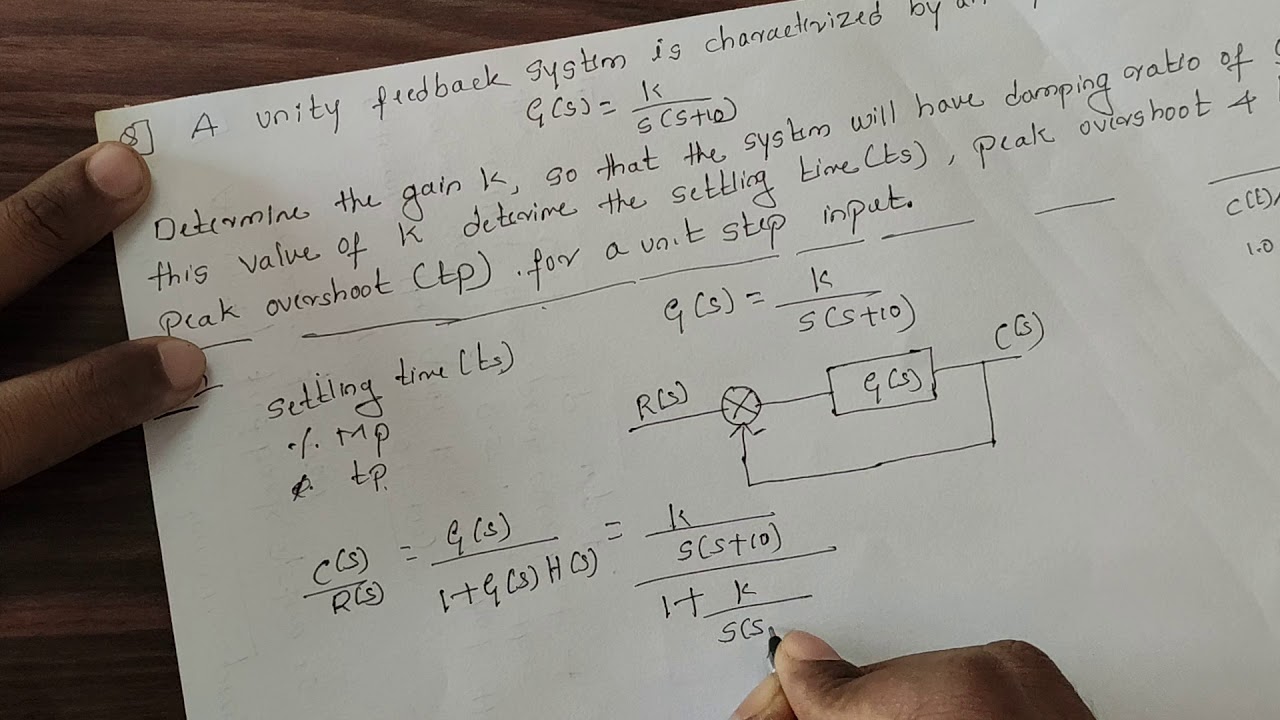 8] A unity feedback system is characterized by an
G(s) = k / s(s+10)
Determine the gain k, so that the system will have damping ratio of
this value of k deterime the settling time (ts), peak overshoot &
peak overshoot (tp). for a unit step input.
G(s) = k / s(s+10)
C(t)
1.0
settling time (ts)
·/. Mp
tp.
R(s)
G(s)
C(s)
-
C(s)/R(s) = G(s) / 1+G(s)H(s) = k / s(s+10) / 1+ k / s(s